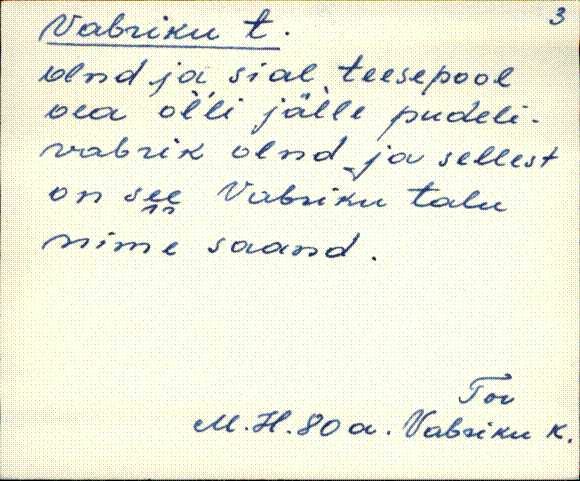 3
Vabriku t.
olnd ja sial teesepool
oea olli jälle pudeli-
vabrik olnd ja sellest
on see Vabriku talu
nime saand.
Tor
M.H. 80 a. Vabriku k.